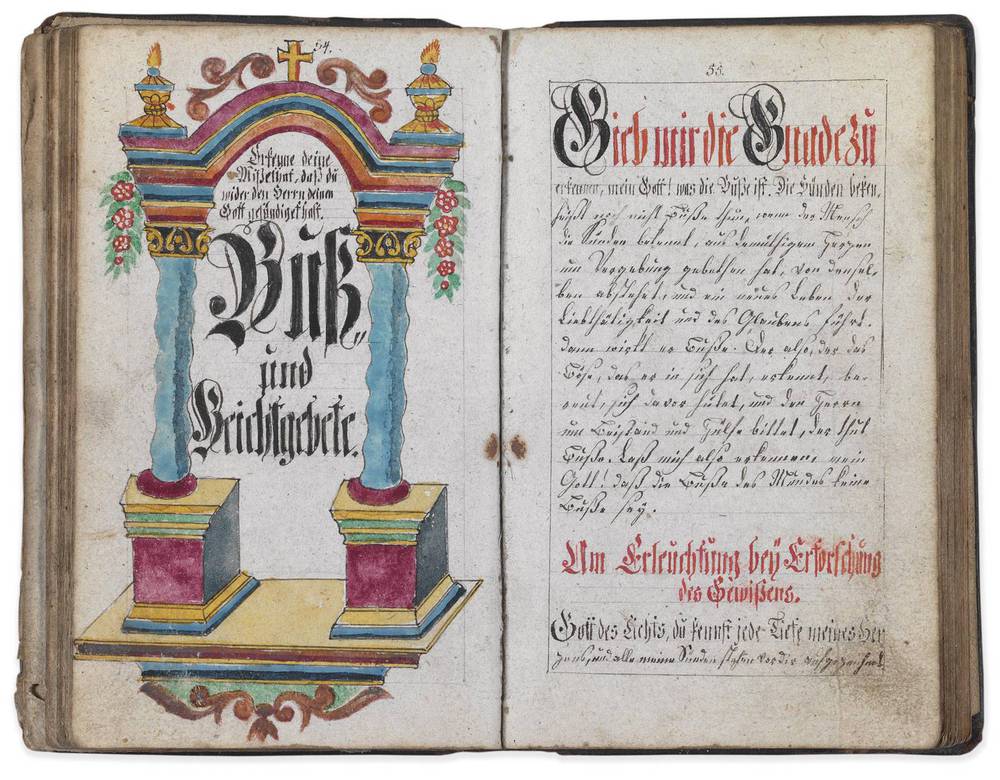 54.
Erkenne deine
Mißethat, daß du
wider den Herrn deinen
Gott gesündiget hast.
Buß„
und
Beichtgebete.
55.
Gieb mir die Gnade zu
erkennen, mein Gott! was die Buße ist. Die Sünden beken„
heißt noch nicht Buße thun, wenn der Mensch
die Sünden bekennt, aus demüthigem Herzen
um Vergebung gebethen hat, von densel„
ben absteht, und ein neues Leben der
Liebthätigkeit und des Glaubens führt.
dann wirkt er Buße. Der also, der das
Böse, das er in sich hat, erkennt, be„
reut, sich davor hütet, und den Herrn
um Beistand und Hülfe bittet, der thut
Buße. Laß mich also erkennen, mein
Gott! daß die Buße des Mundes keine
Buße sey.
Um Erleuchtung bey Erforschung
des Gewißens.
Gott des Lichts, du kennst jede Tiefe meines Her„
zens, und alle meine Sünden stehen vor dir aufgezeichnet